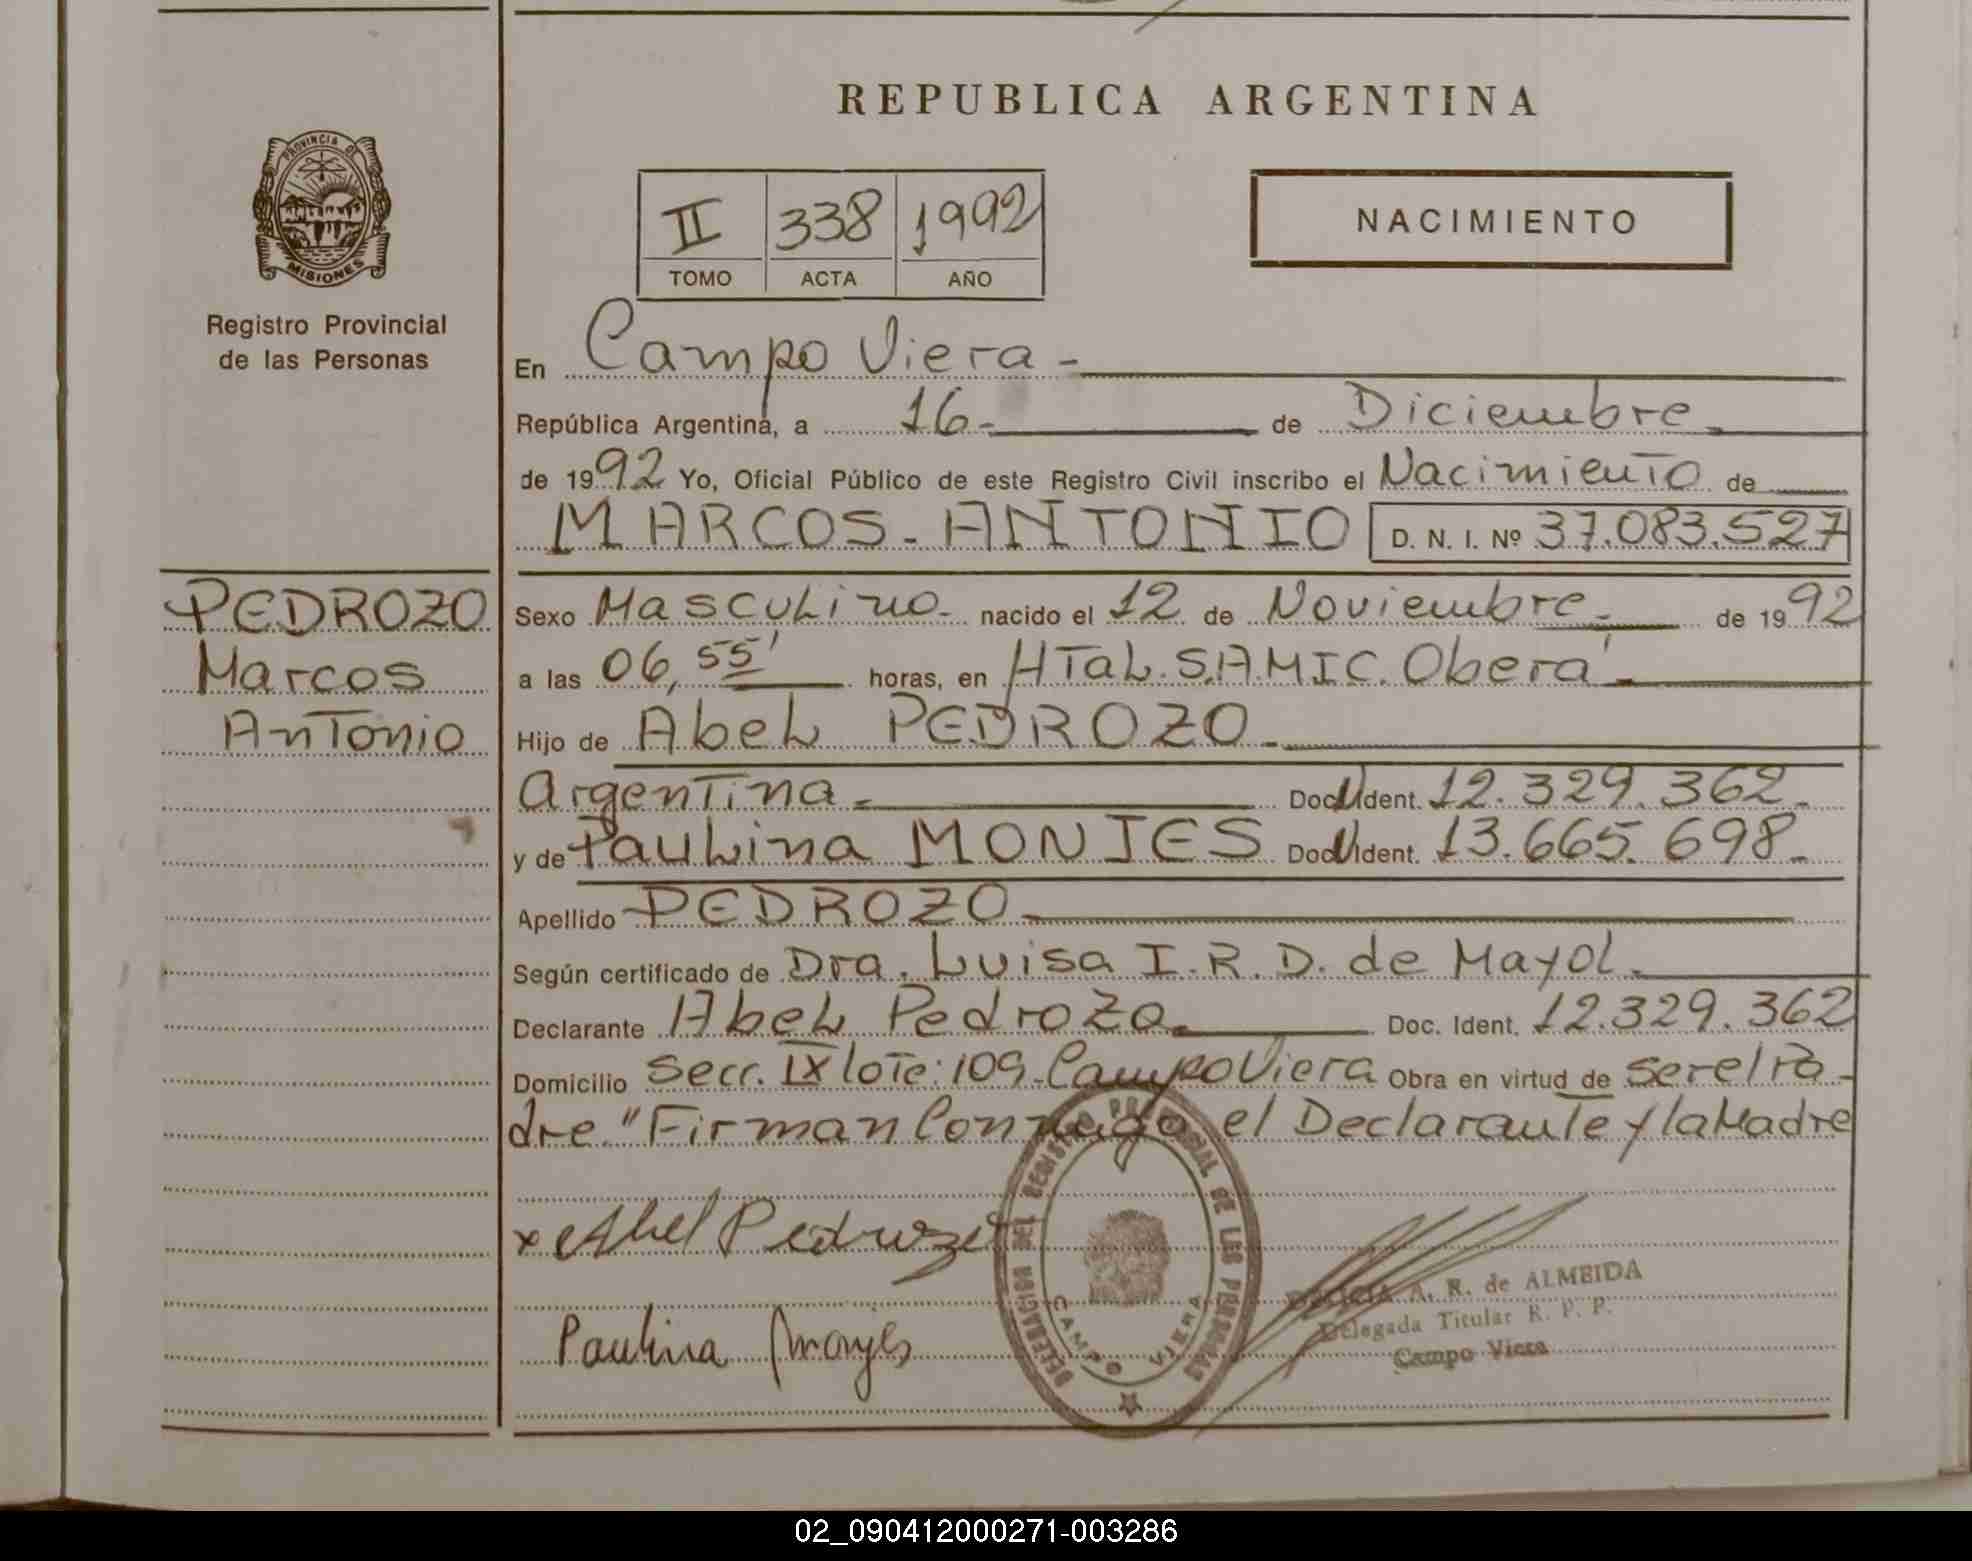 REPUBLICA ARGENTINA
PROVINCIA DE
MISIONES
Registro Provincial
de las Personas
II 338 1992
TOMO ACTA AÑO
NACIMIENTO
En Campo Viera -
República Argentina, a 16 - de Diciembre.
de 1992 Yo, Oficial Público de este Registro Civil inscribo el Nacimiento de
MARCOS - ANTONIO D. N. I. Nº 37.083.527
PEDROZO
Marcos
Antonio
Sexo Masculino - nacido el 12 de Noviembre - de 1992
a las 06,55' horas, en HTal. S.A.M.I.C. Oberá -
Hijo de Abel PEDROZO -
Argentina - Doc. Ident. 12.329.362 -
y de Paulina MONJES Doc. Ident. 13.665.698 -
Apellido PEDROZO -
Según certificado de Dra. Luisa I. R. D. de Mayol -
Declarante Abel Pedrozo - Doc. Ident. 12.329.362
Domicilio Secc. IX lote: 109 - Campo Viera Obra en virtud de ser el Pa-
dre " Firman Conmigo el Declarante y la Madre
x Abel Pedrozo
Paulina Monjes
DELEGACION DEL REGISTRO PROVINCIAL DE LAS PERSONAS
CAMPO VIERA
A. R. de ALMEIDA
Delegada Titular R. P. P.
Campo Viera
02_090412000271-003286